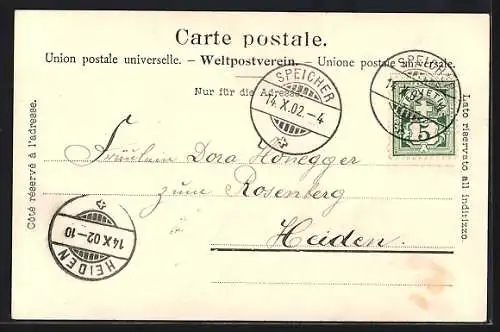 Carte postale.
Union postale universelle. – Weltpostverein. – Unione postale universale.
Nur für die Adresse.
SPEICHER
14.X.02.-4
SPEICH
HELVETIA
5
Côté réservé à l'adresse.
Lato riservato all indirizzo.
Fräulein Dora Honegger
zum Rosenberg
Heiden.
14.X.02.-10
HEIDEN